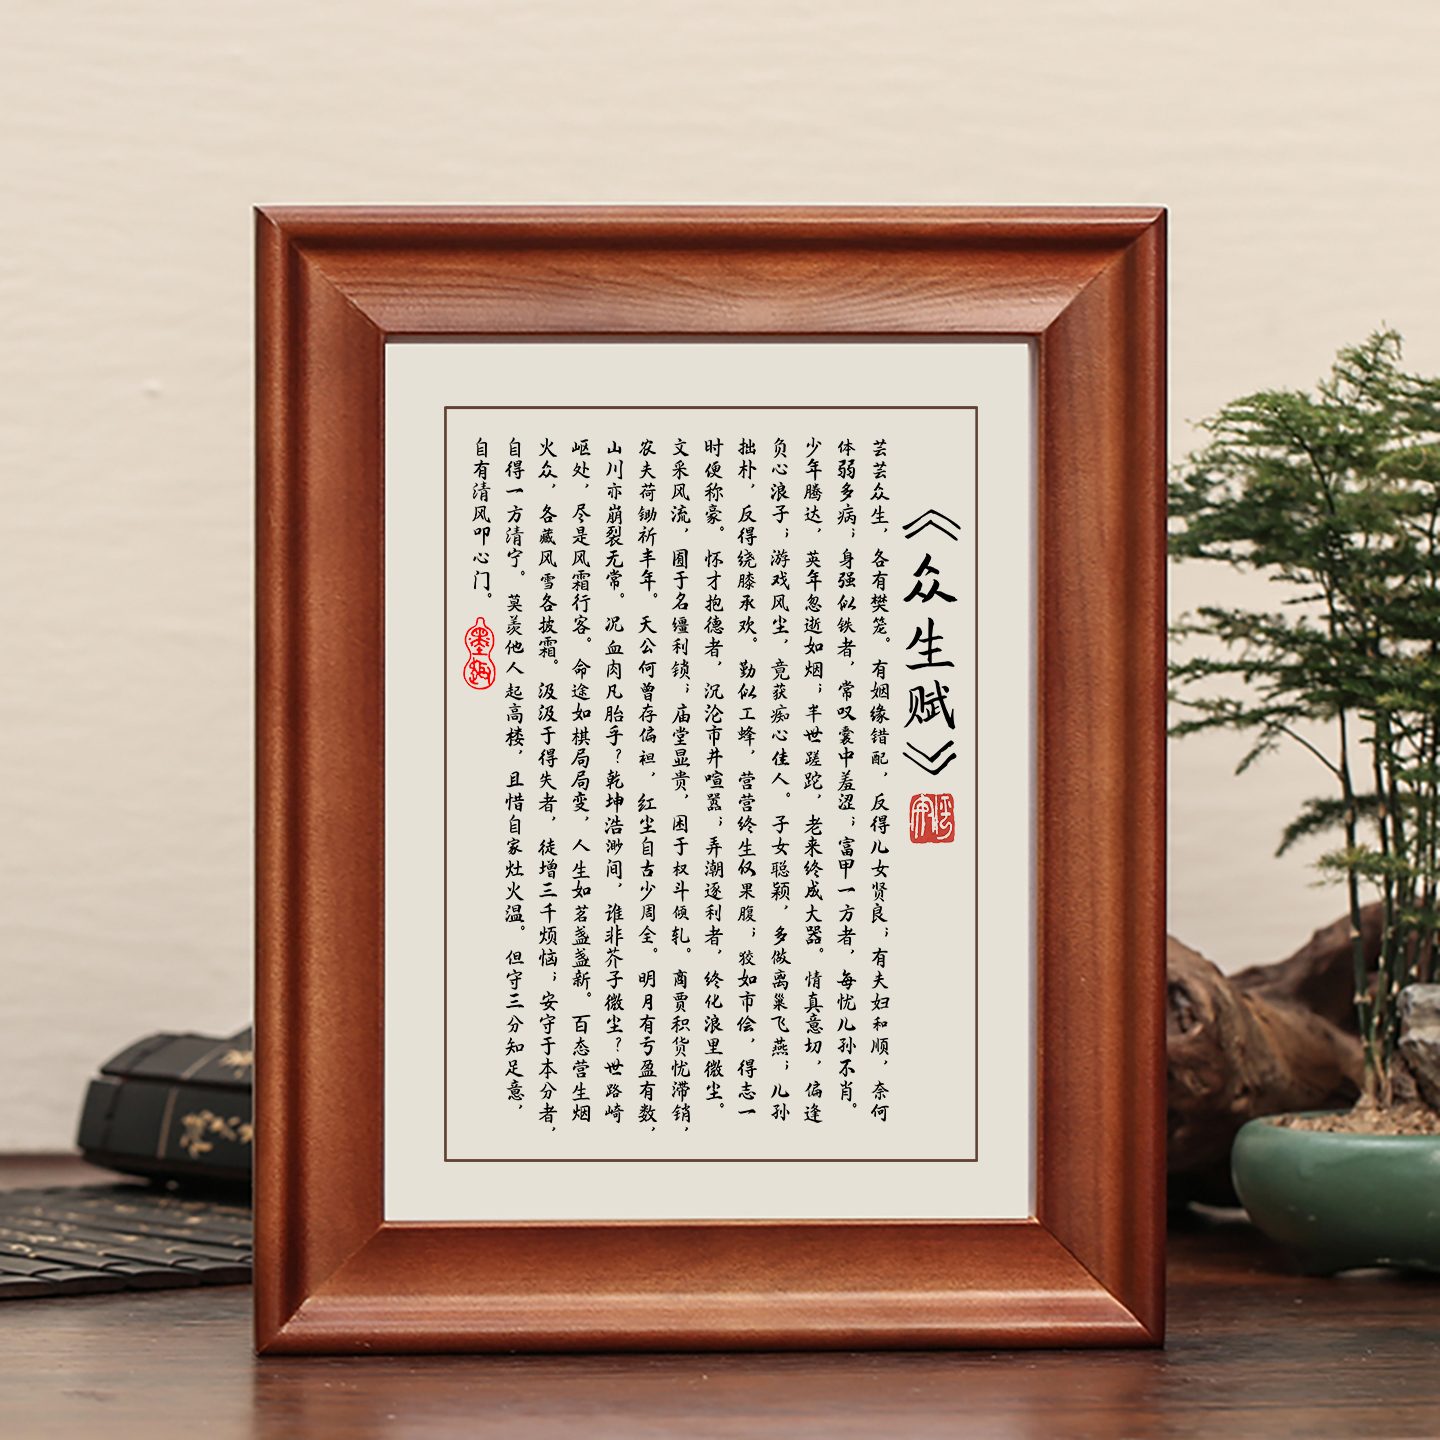 《众生赋》
芸芸众生，各有樊笼。有姻缘错配，反得儿女贤良；有夫妇和顺，奈何
体弱多病；身强似铁者，常叹囊中羞涩；富甲一方者，每忧儿孙不肖。
少年腾达，英年忽逝如烟；半世蹉跎，老来终成大器。情真意切，偏逢
负心浪子；游戏风尘，竟获痴心佳人。子女聪颖，多做离巢飞燕；儿孙
拙朴，反得绕膝承欢。勤似工蜂，营营终生仅果腹；狡如市侩，得志一
时便称豪。怀才抱德者，沉沦市井喧嚣；弄潮逐利者，终化浪里微尘。
文采风流，囿于名缰利锁；庙堂显贵，困于权斗倾轧。商贾积货忧滞销，
农夫荷锄祈丰年。天公何曾存偏袒，红尘自古少周全。明月有亏盈有数，
山川亦崩裂无常。况血肉凡胎乎？乾坤浩渺间，谁非芥子微尘？世路崎
岖处，尽是风霜行客。命途如棋局局变，人生如茗盏盏新。百态营生烟
火众，各藏风雪各披霜。汲汲于得失者，徒增三千烦恼；安守于本分者，
自得一方清宁。莫羡他人起高楼，且惜自家灶火温。但守三分知足意，
自有清风叩心门。